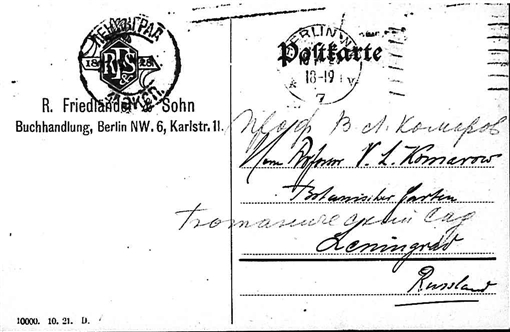 ЛЕНИНГРАД
18 28
R. Friedländer & Sohn
Buchhandlung, Berlin NW. 6, Karlstr. 11.
10000. 10. 21. D.
BERLIN
Postkarte
18-19
7
Проф В Л. Комаров
Herrn Professor V. L. Komarow
Botanischer Garten
Ботанический Сад
Leningrad
Russland